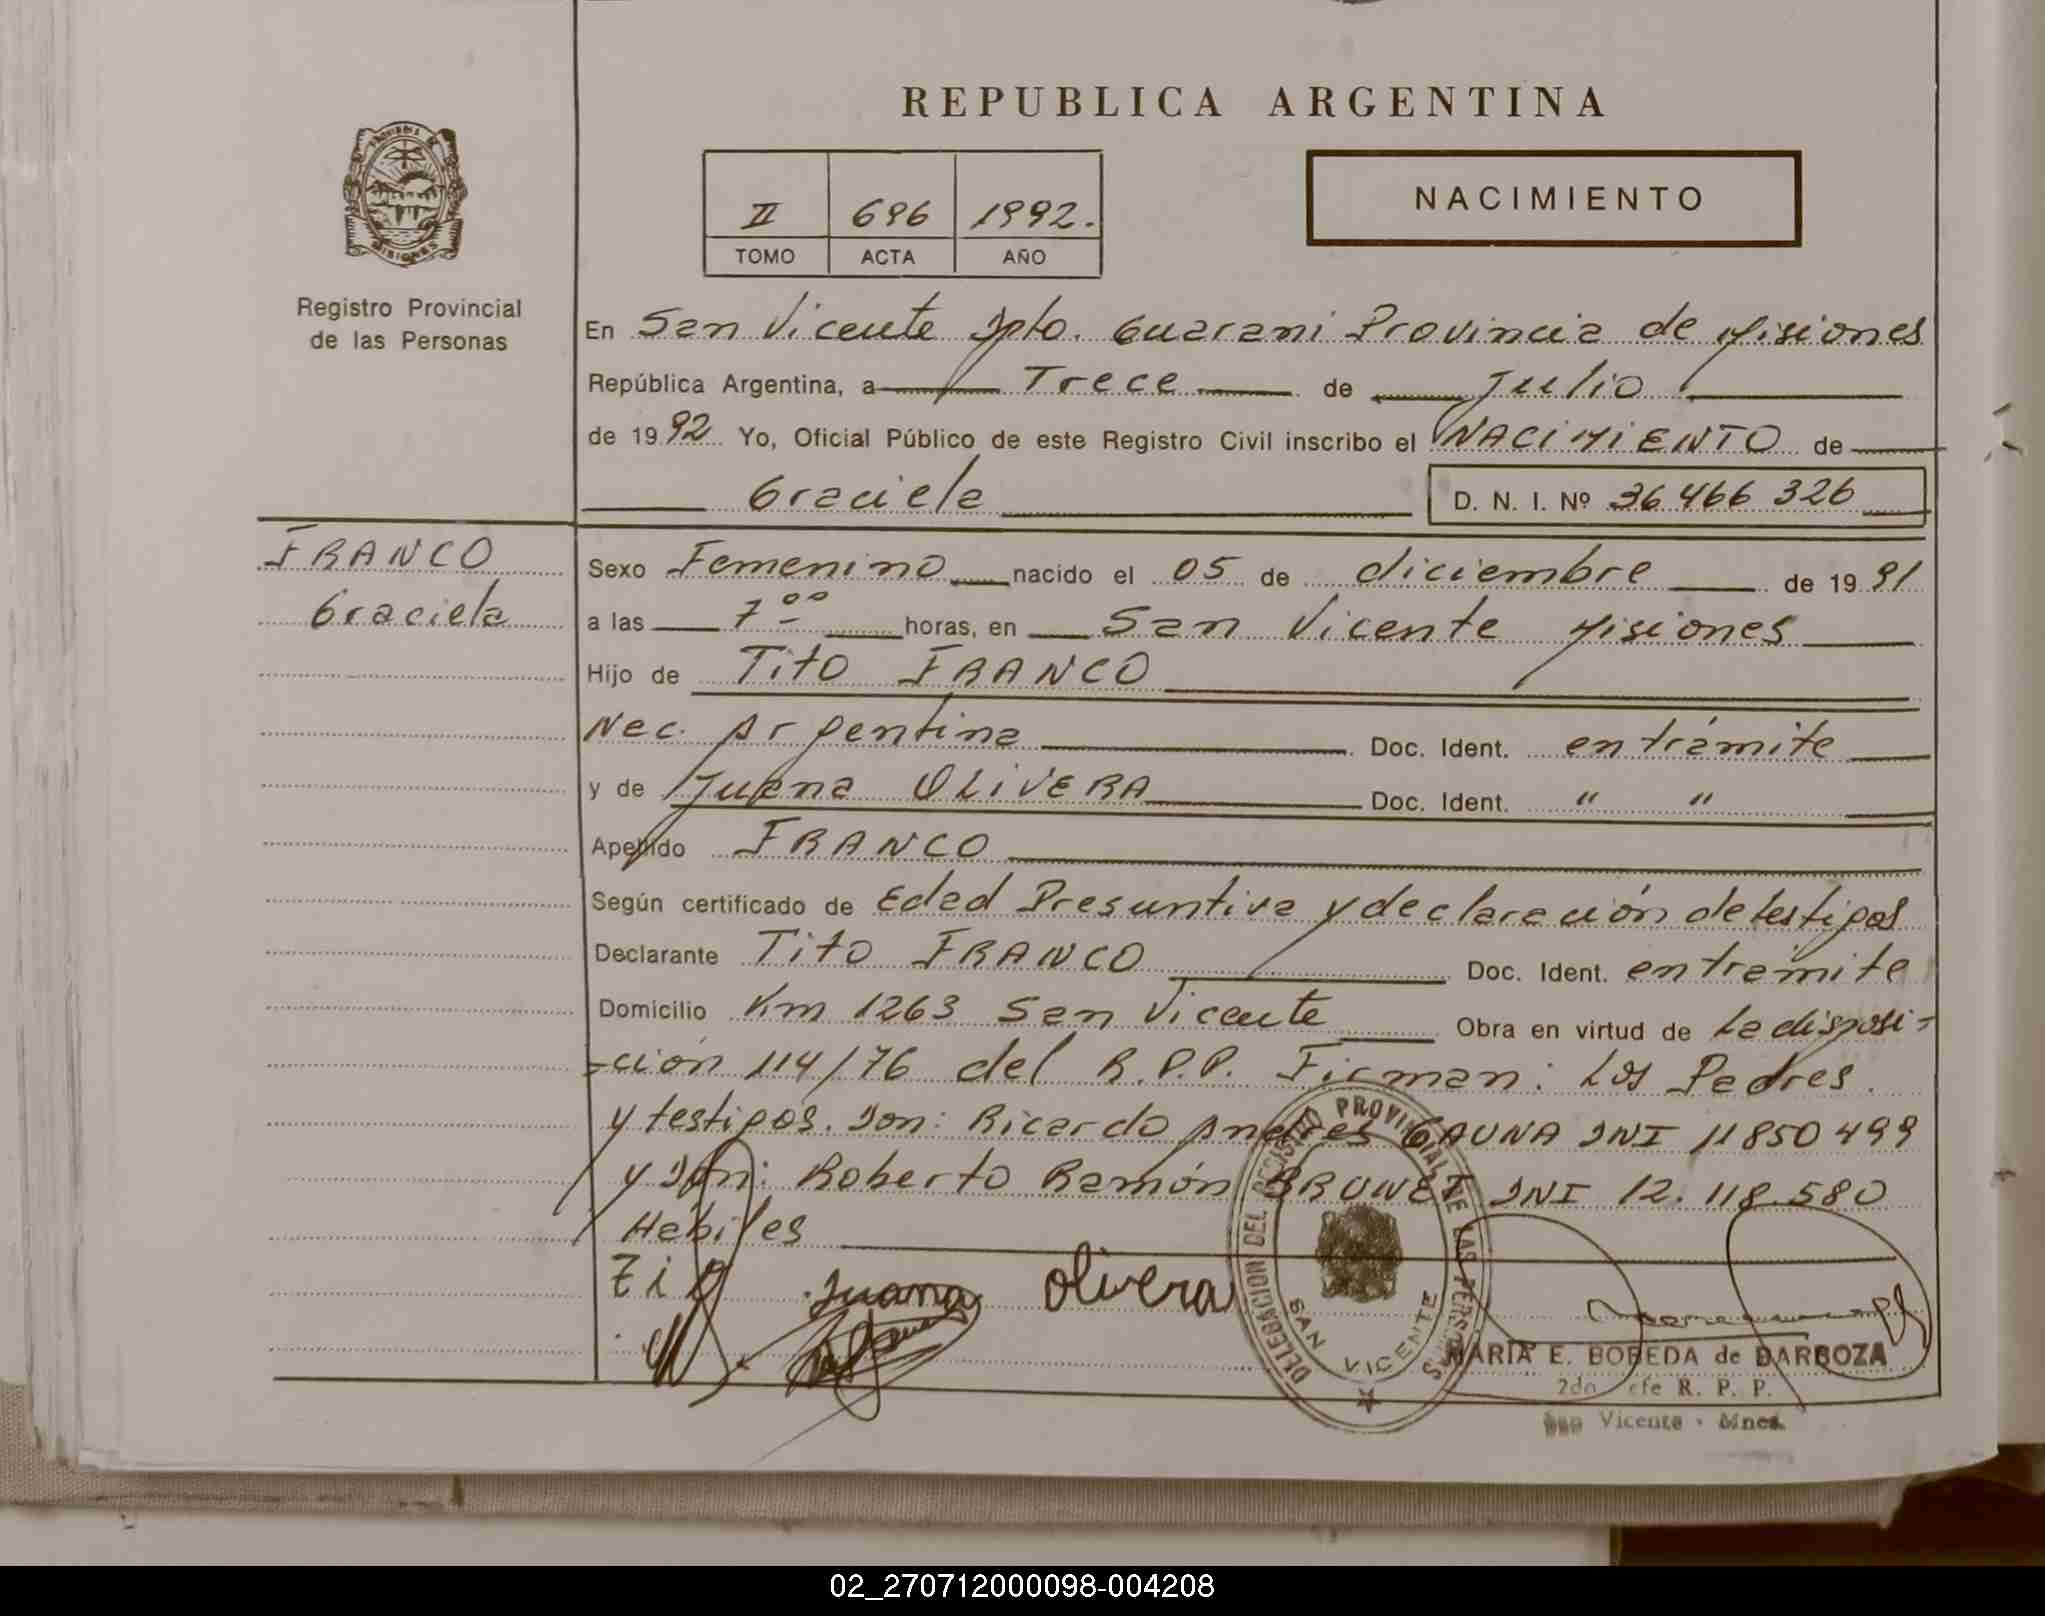 REPUBLICA ARGENTINA
NACIMIENTO
II 696 1992.
TOMO ACTA AÑO
MISIONES
Registro Provincial
de las Personas
En San Vicente Dpto. Guarani Provincia de Misiones
República Argentina, a Trece de Julio
de 1992 Yo, Oficial Público de este Registro Civil inscribo el NACIMIENTO de
Graciela D. N. I. Nº 36 466 326
FRANCO
Graciela
Sexo Femenino nacido el 05 de diciembre de 1991
a las 7 00 horas, en San Vicente Misiones
Hijo de Tito FRANCO
Nac. Argentina Doc. Ident. en trámite
y de Juana OLIVERA Doc. Ident. " "
Apellido FRANCO
Según certificado de Edad Presuntiva y declaración de testigos
Declarante Tito FRANCO Doc. Ident. en trámite
Domicilio Km 1263 San Vicente Obra en virtud de la disposi-
-ción 114/76 del R.P.P. Firman: Los Padres
y testigos. Don: Ricardo Andres GAUNA DNI 11850499
y Don: Roberto Ramón BRUNET DNI 12.118.580
Hábiles
Juana Olivera
DELEGACION DEL REGISTRO PROVINCIAL DE LAS PERSONAS
SAN VICENTE
MARIA E. BOBEDA de BARBOZA
2do Jefe R. P. P.
San Vicente - Mnes.
02_270712000098-004208